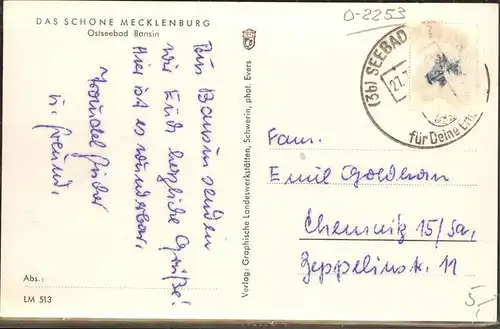 DAS SCHÖNE MECKLENBURG
Ostseebad Bansin
O-2253
(3b) SEEBAD
27.7
für Deine
Aus Bansin senden
wir Euch herzliche Grüße!
Hier ist es wunderbar.
u. Freund.
Fam.
Emil Goldhan
Chemnitz 15/Sa.
Zeppelinstr. 11
Verlag: Graphische Landeswerkstätten, Schwerin, phot. Evers
Abs.:
LM 513
5,-